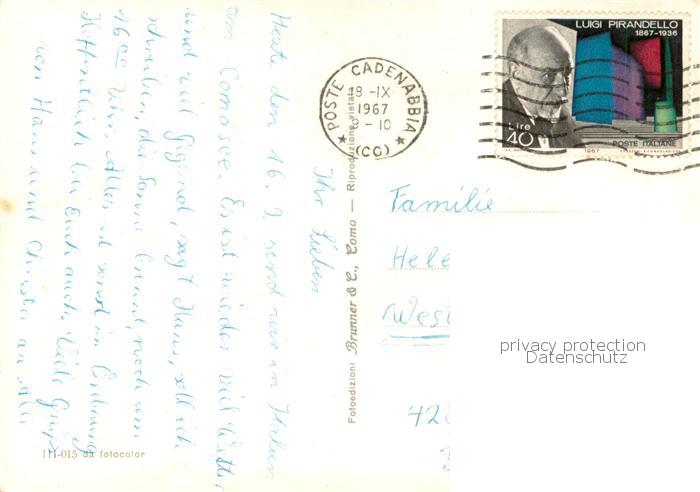 LUIGI PIRANDELLO
1867-1936
Lire
40
POSTE ITALIANE
1967
POSTE CADENABBIA
18 -IX
1967
- 10
(CO)
Fotoedizioni Brunner & C., Como — Riproduzione vietata
Ihr Lieben
Heute den 16. 9. sind wir in Italien
am Comosee. Es ist wieder viel Wetter
und viel Gegend, sagt Hans, soll ich
schreiben, die Sonne brennt, noch um
16 00 Uhr. Alles ist sonst in Ordnung
Hoffentlich bei Euch auch. Viele Grüße
von Hans und Christa an Alle
Familie
Hele
West
42
privacy protection
Datenschutz
111-015 da fotocolor